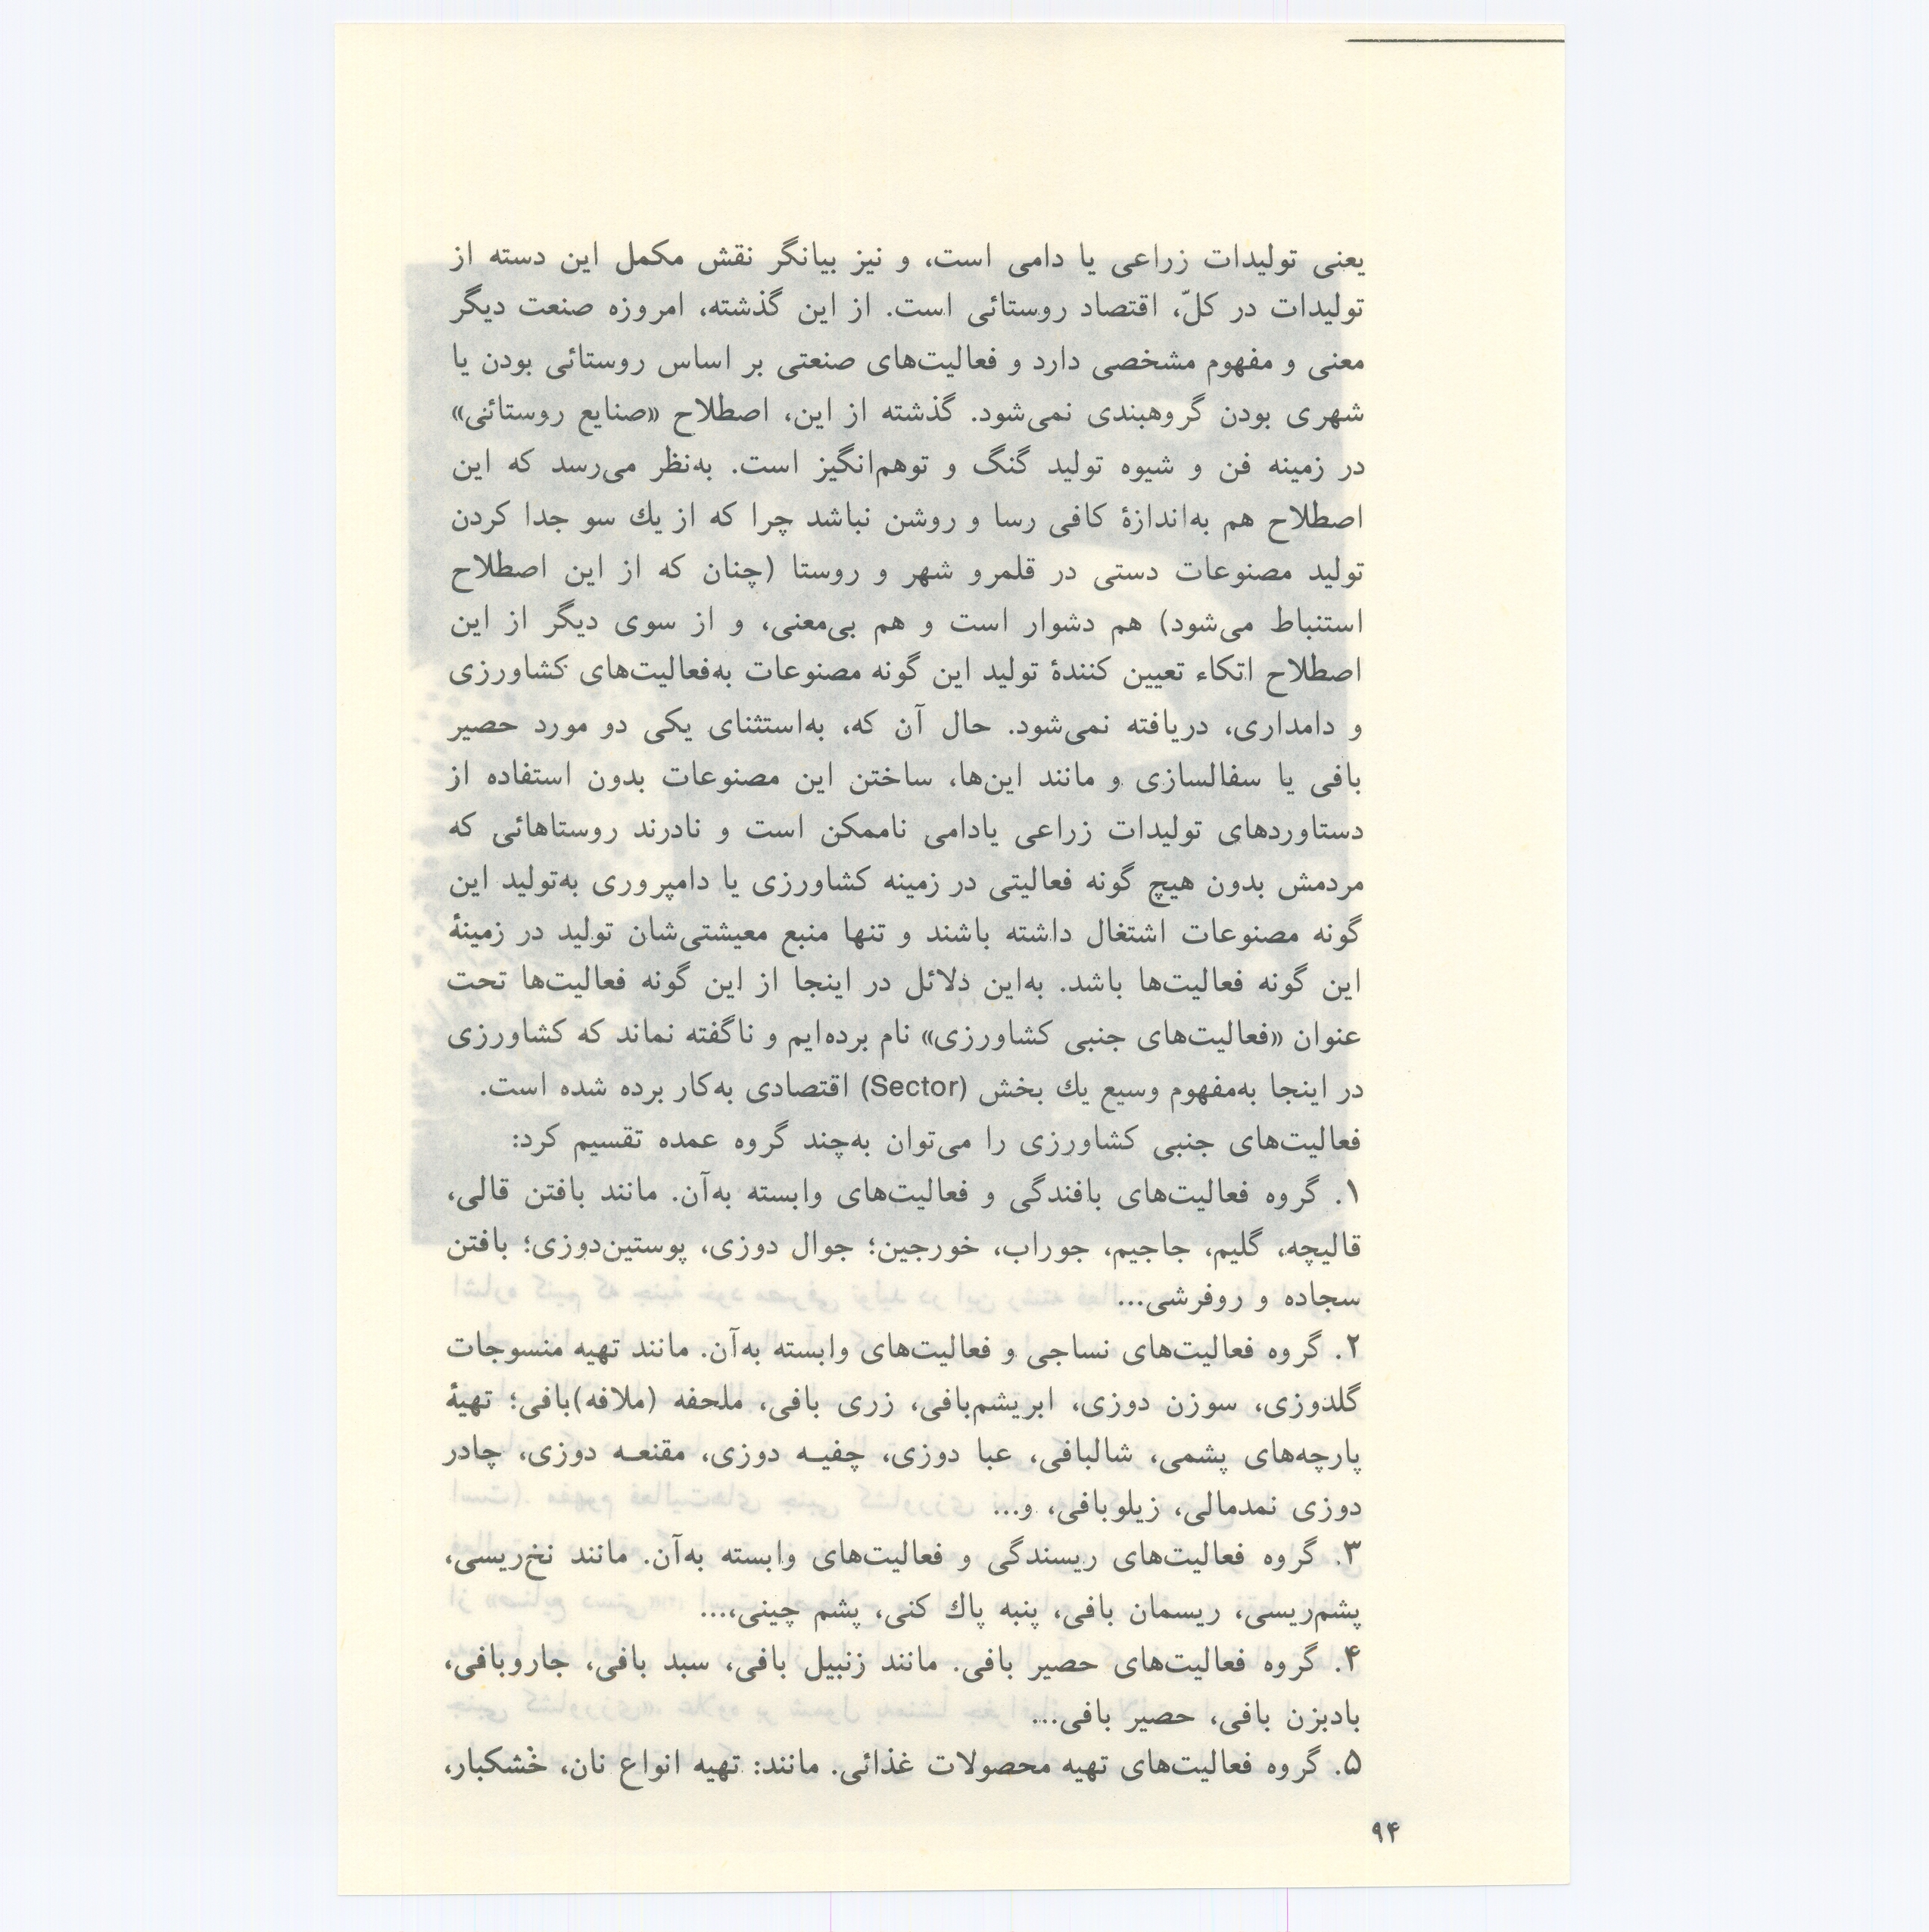 یعنی تولیدات زراعی یا دامی است، و نیز بیانگر نقش مکمل این دسته از
تولیدات در کلّ، اقتصاد روستائی است. از این گذشته، امروزه صنعت دیگر
معنی و مفهوم مشخصی دارد و فعالیت‌های صنعتی بر اساس روستائی بودن یا
شهری بودن گروهبندی نمی‌شود. گذشته از این، اصطلاح «صنایع روستائی»
در زمینه فن و شیوه تولید گنگ و توهم‌انگیز است. به‌نظر می‌رسد که این
اصطلاح هم به‌اندازهٔ کافی رسا و روشن نباشد چرا که از یك سو جدا کردن
تولید مصنوعات دستی در قلمرو شهر و روستا (چنان که از این اصطلاح
استنباط می‌شود) هم دشوار است و هم بی‌معنی، و از سوی دیگر از این
اصطلاح اتکاء تعیین کنندهٔ تولید این گونه مصنوعات به‌فعالیت‌های کشاورزی
و دامداری، دریافته نمی‌شود. حال آن که، به‌استثنای یکی دو مورد حصیر
بافی یا سفالسازی و مانند این‌ها، ساختن این مصنوعات بدون استفاده از
دستاوردهای تولیدات زراعی یادامی ناممکن است و نادرند روستاهائی که
مردمش بدون هیچ گونه فعالیتی در زمینه کشاورزی یا دامپروری به‌تولید این
گونه مصنوعات اشتغال داشته باشند و تنها منبع معیشتی‌شان تولید در زمینهٔ
این گونه فعالیت‌ها باشد. به‌این دلائل در اینجا از این گونه فعالیت‌ها تحت
عنوان «فعالیت‌های جنبی کشاورزی» نام برده‌ایم و ناگفته نماند که کشاورزی
در اینجا به‌مفهوم وسیع یك بخش (Sector) اقتصادی به‌کار برده شده است.
فعالیت‌های جنبی کشاورزی را می‌توان به‌چند گروه عمده تقسیم کرد:
۱. گروه فعالیت‌های بافندگی و فعالیت‌های وابسته به‌آن. مانند بافتن قالی،
قالیچه، گلیم، جاجیم، جوراب، خورجین؛ جوال دوزی، پوستین‌دوزی؛ بافتن
سجاده و روفرشی...
۲. گروه فعالیت‌های نساجی و فعالیت‌های وابسته به‌آن. مانند تهیه منسوجات
گلدوزی، سوزن دوزی، ابریشم‌بافی، زری بافی، ملحفه (ملافه)بافی؛ تهیهٔ
پارچه‌های پشمی، شالبافی، عبا دوزی، چفیـه دوزی، مقنعـه دوزی، چادر
دوزی نمدمالی، زیلوبافی، و...
۳. گروه فعالیت‌های ریسندگی و فعالیت‌های وابسته به‌آن. مانند نخ‌ریسی،
پشم‌ریسی، ریسمان بافی، پنبه پاك کنی، پشم چینی،...
۴. گروه فعالیت‌های حصیر بافی. مانند زنبیل بافی، سبد بافی، جاروبافی،
بادبزن بافی، حصیر بافی...
۵. گروه فعالیت‌های تهیه محصولات غذائی. مانند: تهیه انواع نان، خشکبار،
۹۴